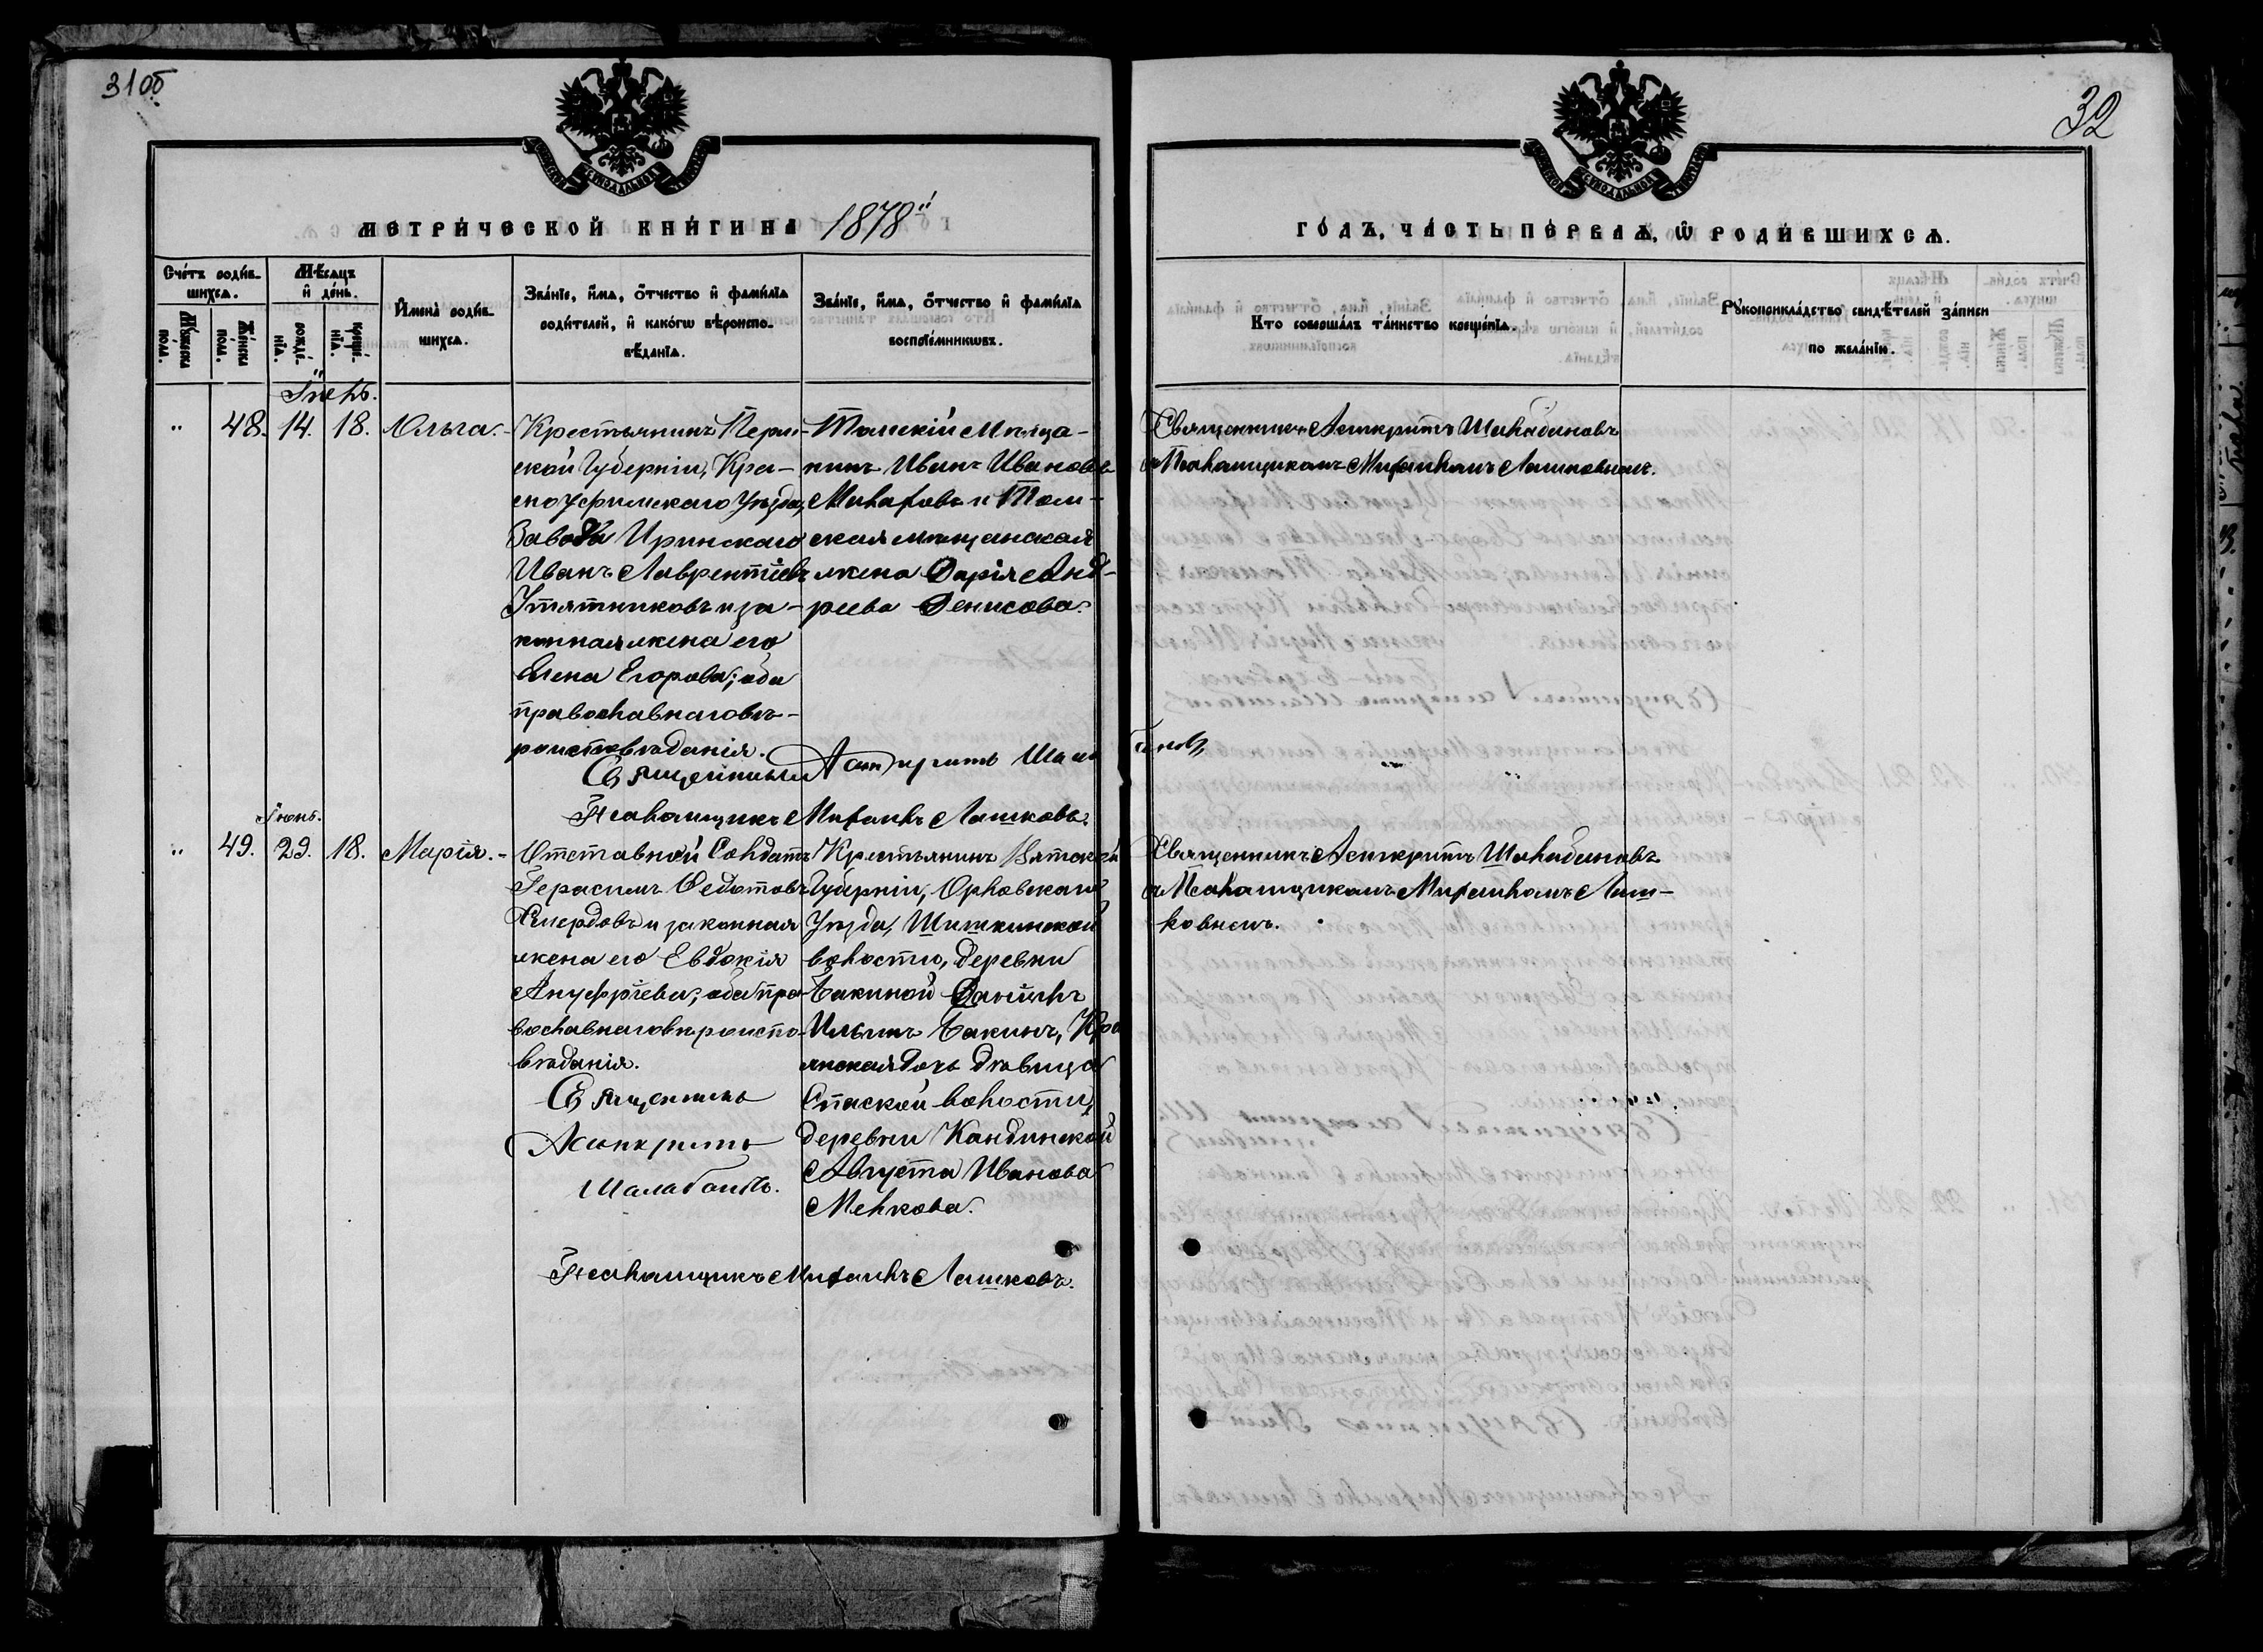 31 об
32
МЕТРИ́ЧЕСКОЙ КНИ́ГИ НА 1878й
ГО́ДЪ, ЧА́СТЬ ПЕ́РВАѦ, Ѡ РОДИ́ВШИХСѦ.
Сче́тъ роди́в-
шихсѧ.
Мѣ́сѧцъ
и҆ де́нь.
Мꙋ́жеска
по́ла.
Же́нска
по́ла.
рожде́-
нїѧ.
креще́-
нїѧ.
И҆мена̀ роди́в-
шихсѧ.
Зва́нїе, и҆́мѧ, ѻ҆́тчество и҆ фами́лїѧ
роди́телей, и҆ како́гѡ вѣроиспо-
вѣ́данїѧ.
Зва́нїе, и҆́мѧ, ѻ҆́тчество и҆ фами́лїѧ
воспрїе́мникѡвъ.
Кто̀ соверша́лъ та́инство креще́нїѧ.
Рꙋкоприкла́дство свидѣ́телей за́писи
по жела́нїю.
" 48. 14. 18. Ольга.
Крестьянинъ Перм-
ской Губерніи, Кра-
сноуфимскаго Уѣзда,
Завода Иринскаго
Иванъ Лаврентіевъ
Утятниковъ и за-
конная жена его
Елена Егорова; оба
православнаго вѣ-
роисповѣданія.
Томскій Мѣща-
нинъ Иванъ Ивановъ
и Том-
ская мѣщанская
жена Дарія Анд-
реева Денисова.
Священникъ Асинкритъ Шалабановъ
съ Псаломщикомъ Михаиломъ Лашковымъ.
Священникъ Асинкритъ Шала
бановъ
Псаломщикъ Михаилъ Лашковъ.
Іюнь.
" 49. 29. 18. Марія.
Отставной Солдатъ
Герасимъ Федотовъ
Смердовъ и законная
жена его Евдокія
Ануфріева; оба пра-
вославнаго вѣроиспо-
вѣданія.
Крестьянинъ Вятской
Губерніи, Орловскаго
Уѣзда, Шишкинской
волости, деревни
Бакиной Даніилъ
Ильинъ Бакинъ, Кре
янская дочь дѣвица
Спаской волости,
деревни Кандинской
Августа Иванова
Менкова.
Священникъ Асинкритъ Шалабановъ
съ Псаломщикомъ Михаиломъ Лаш-
ковымъ.
Священникъ
Асинкритъ
Шалабановъ.
Псаломщикъ Михаилъ Лашковъ.